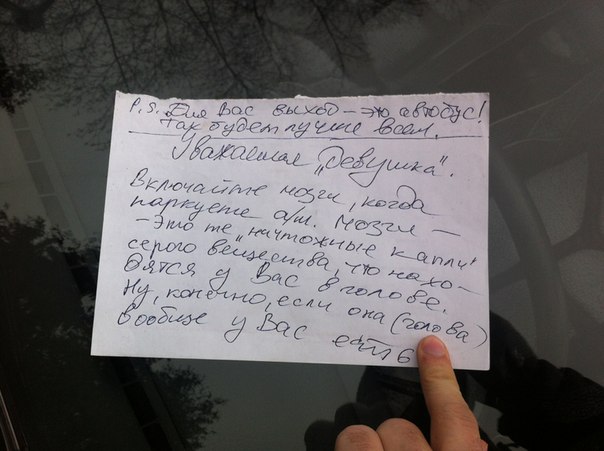 P.S. Для Вас выход — это автобус!
Так будет лучше всем.
Уважаемая „Девушка".
Включайте мозги, когда
паркуете а/м. Мозги —
- Это те „ничтожные капли"
серого вещества, что нахо-
дятся у Вас в голове.
Ну, конечно, если она (голова)
вообще у Вас есть